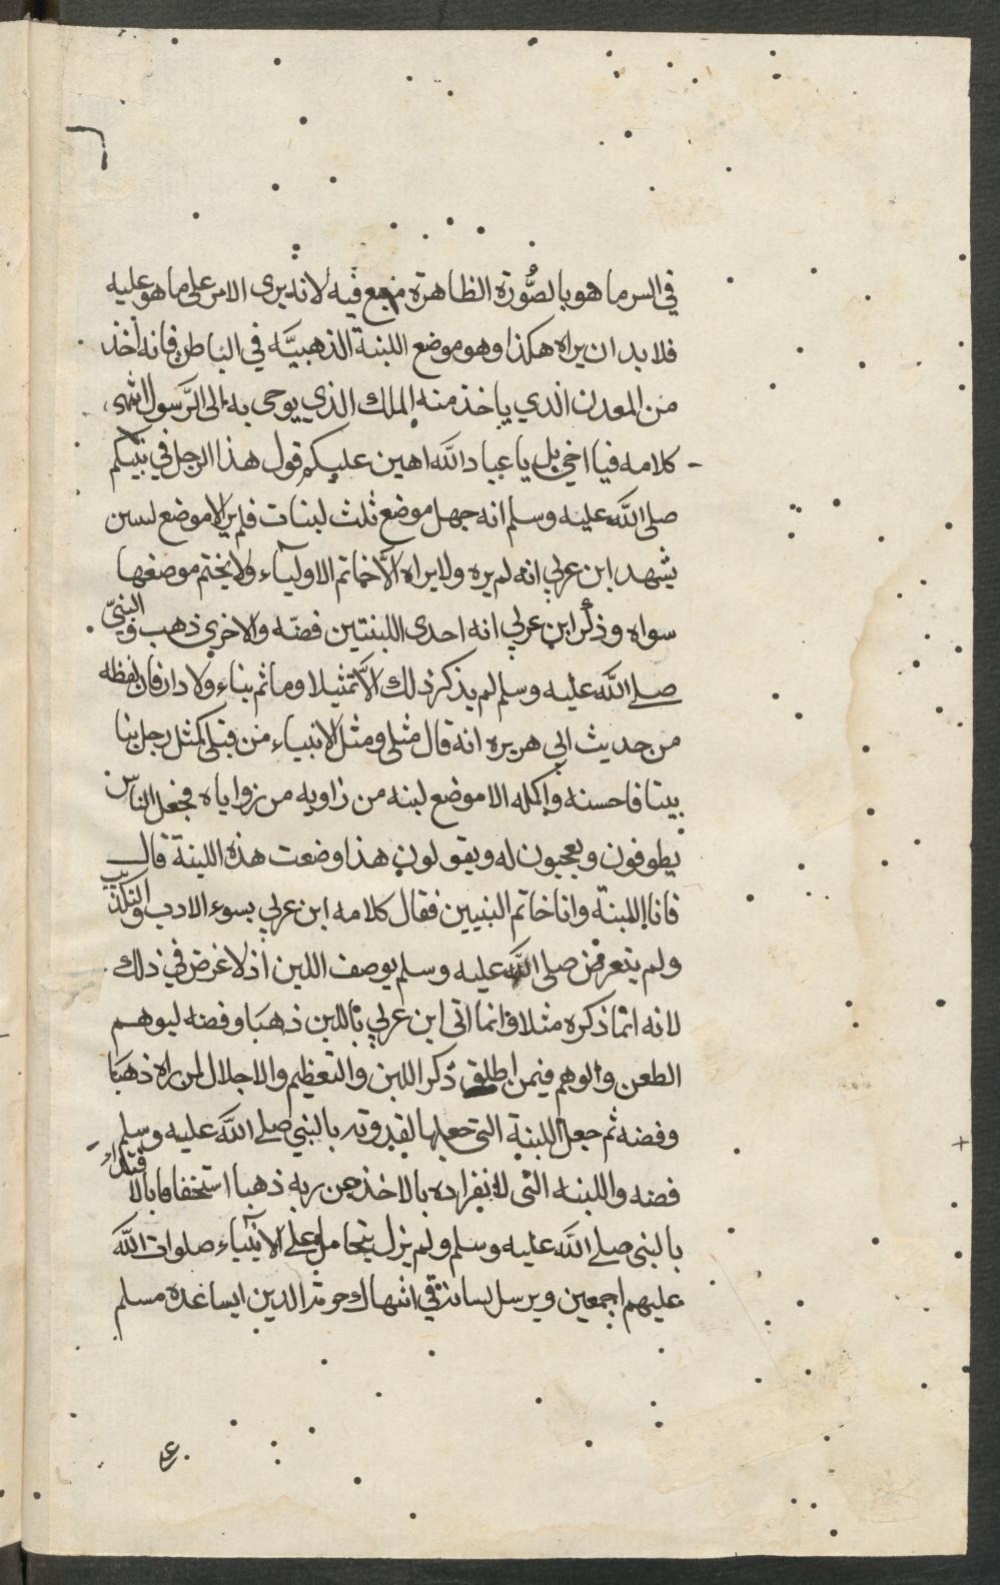 ٦
في السر ما هو بالصورة الظاهرة متبع فيه لانه يرى الامر على ما هو عليه
فلا بد ان يراه هكذا وهو موضع اللبنة الذهبيّه في الباطن فانه أخذ
من المعدن الذي ياخذ منه الملك الذي يوحى به إلى الرّسول انتهى
كلامه فيا اخي بل يا عباد الله اهين عليكم قول هذا الرجل في نبيّكم
صلى الله عليه وسلم انه جهل موضع ثلث لبنات فلم ير الا موضع
يشهد ابن عربي انه لم يره ولا يراه الّا خاتم الاوليآء ولا يختم موضعها
سواه وذكر ابن عربي انه احدى اللبنتين فضّه والاخرى ذهب والنبيّ
صلى الله عليه وسلم لم يذكر ذلك الّا تمثيلا وما ثم بناء ولا دار فان لفظه
من حديث ابي هريره انه قال مثلي ومثل الانبياء من قبلي كمثل رجل بنا
بيتا فاحسنه واكمله الا موضع لبنه من زاويه من زواياه فجعل الناس
يطوفون ويعجبون له ويقولون هذا وضعت هذه اللبنة قال
فانا اللبنة وانا خاتم النبيين فقال كلامه ابن عربي بسوء الادب والتكذيب
ولم يتعرض صلى الله عليه وسلم يوصف اللبن اذ لا غرض في ذلك
لانه انما ذكره مثلا وانما اتى ابن عربي باللبن ذهبا وفضه ليوهم
الطعن والوهم فيمن اطلق ذكر اللبن والتعظيم والاجلال لمن راه ذهبا
وفضه ثم جعل اللبنة التي جعلها لقدوته بالنبي صلى الله عليه وسلم
فضه واللبنه التي لانفراده بالاخذ عن ربه ذهبا استخفافا بالاقتداء
بالنبي صلى الله عليه وسلم ولم يزل يتحامل على الانبياء صلوات الله
عليهم اجمعين ويرسل لسانه في انتهاك حرمة الدين ايساعده مسلم